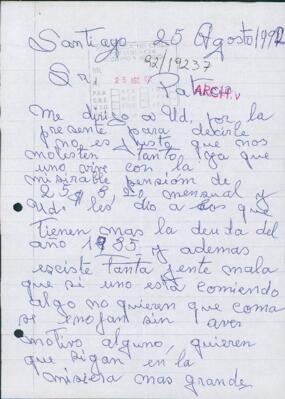 Santiago 25 Agosto 1992
92/19237
Sr Pat
25
ARCHIV
Me dirijo a Ud. por la
presente para decirle
no es justo que nos
molesten tanto ya que
uno vive con la
miserable pensión de
mensual y
Ud. les dio a los que
tienen mas la deuda del
año 1985, y ademas
esciste tanta jente mala
que si uno está comiendo
algo no quieren que coma
se enojan sin aver
motivo alguno, quieren
que sigan en la
misiera mas grande,